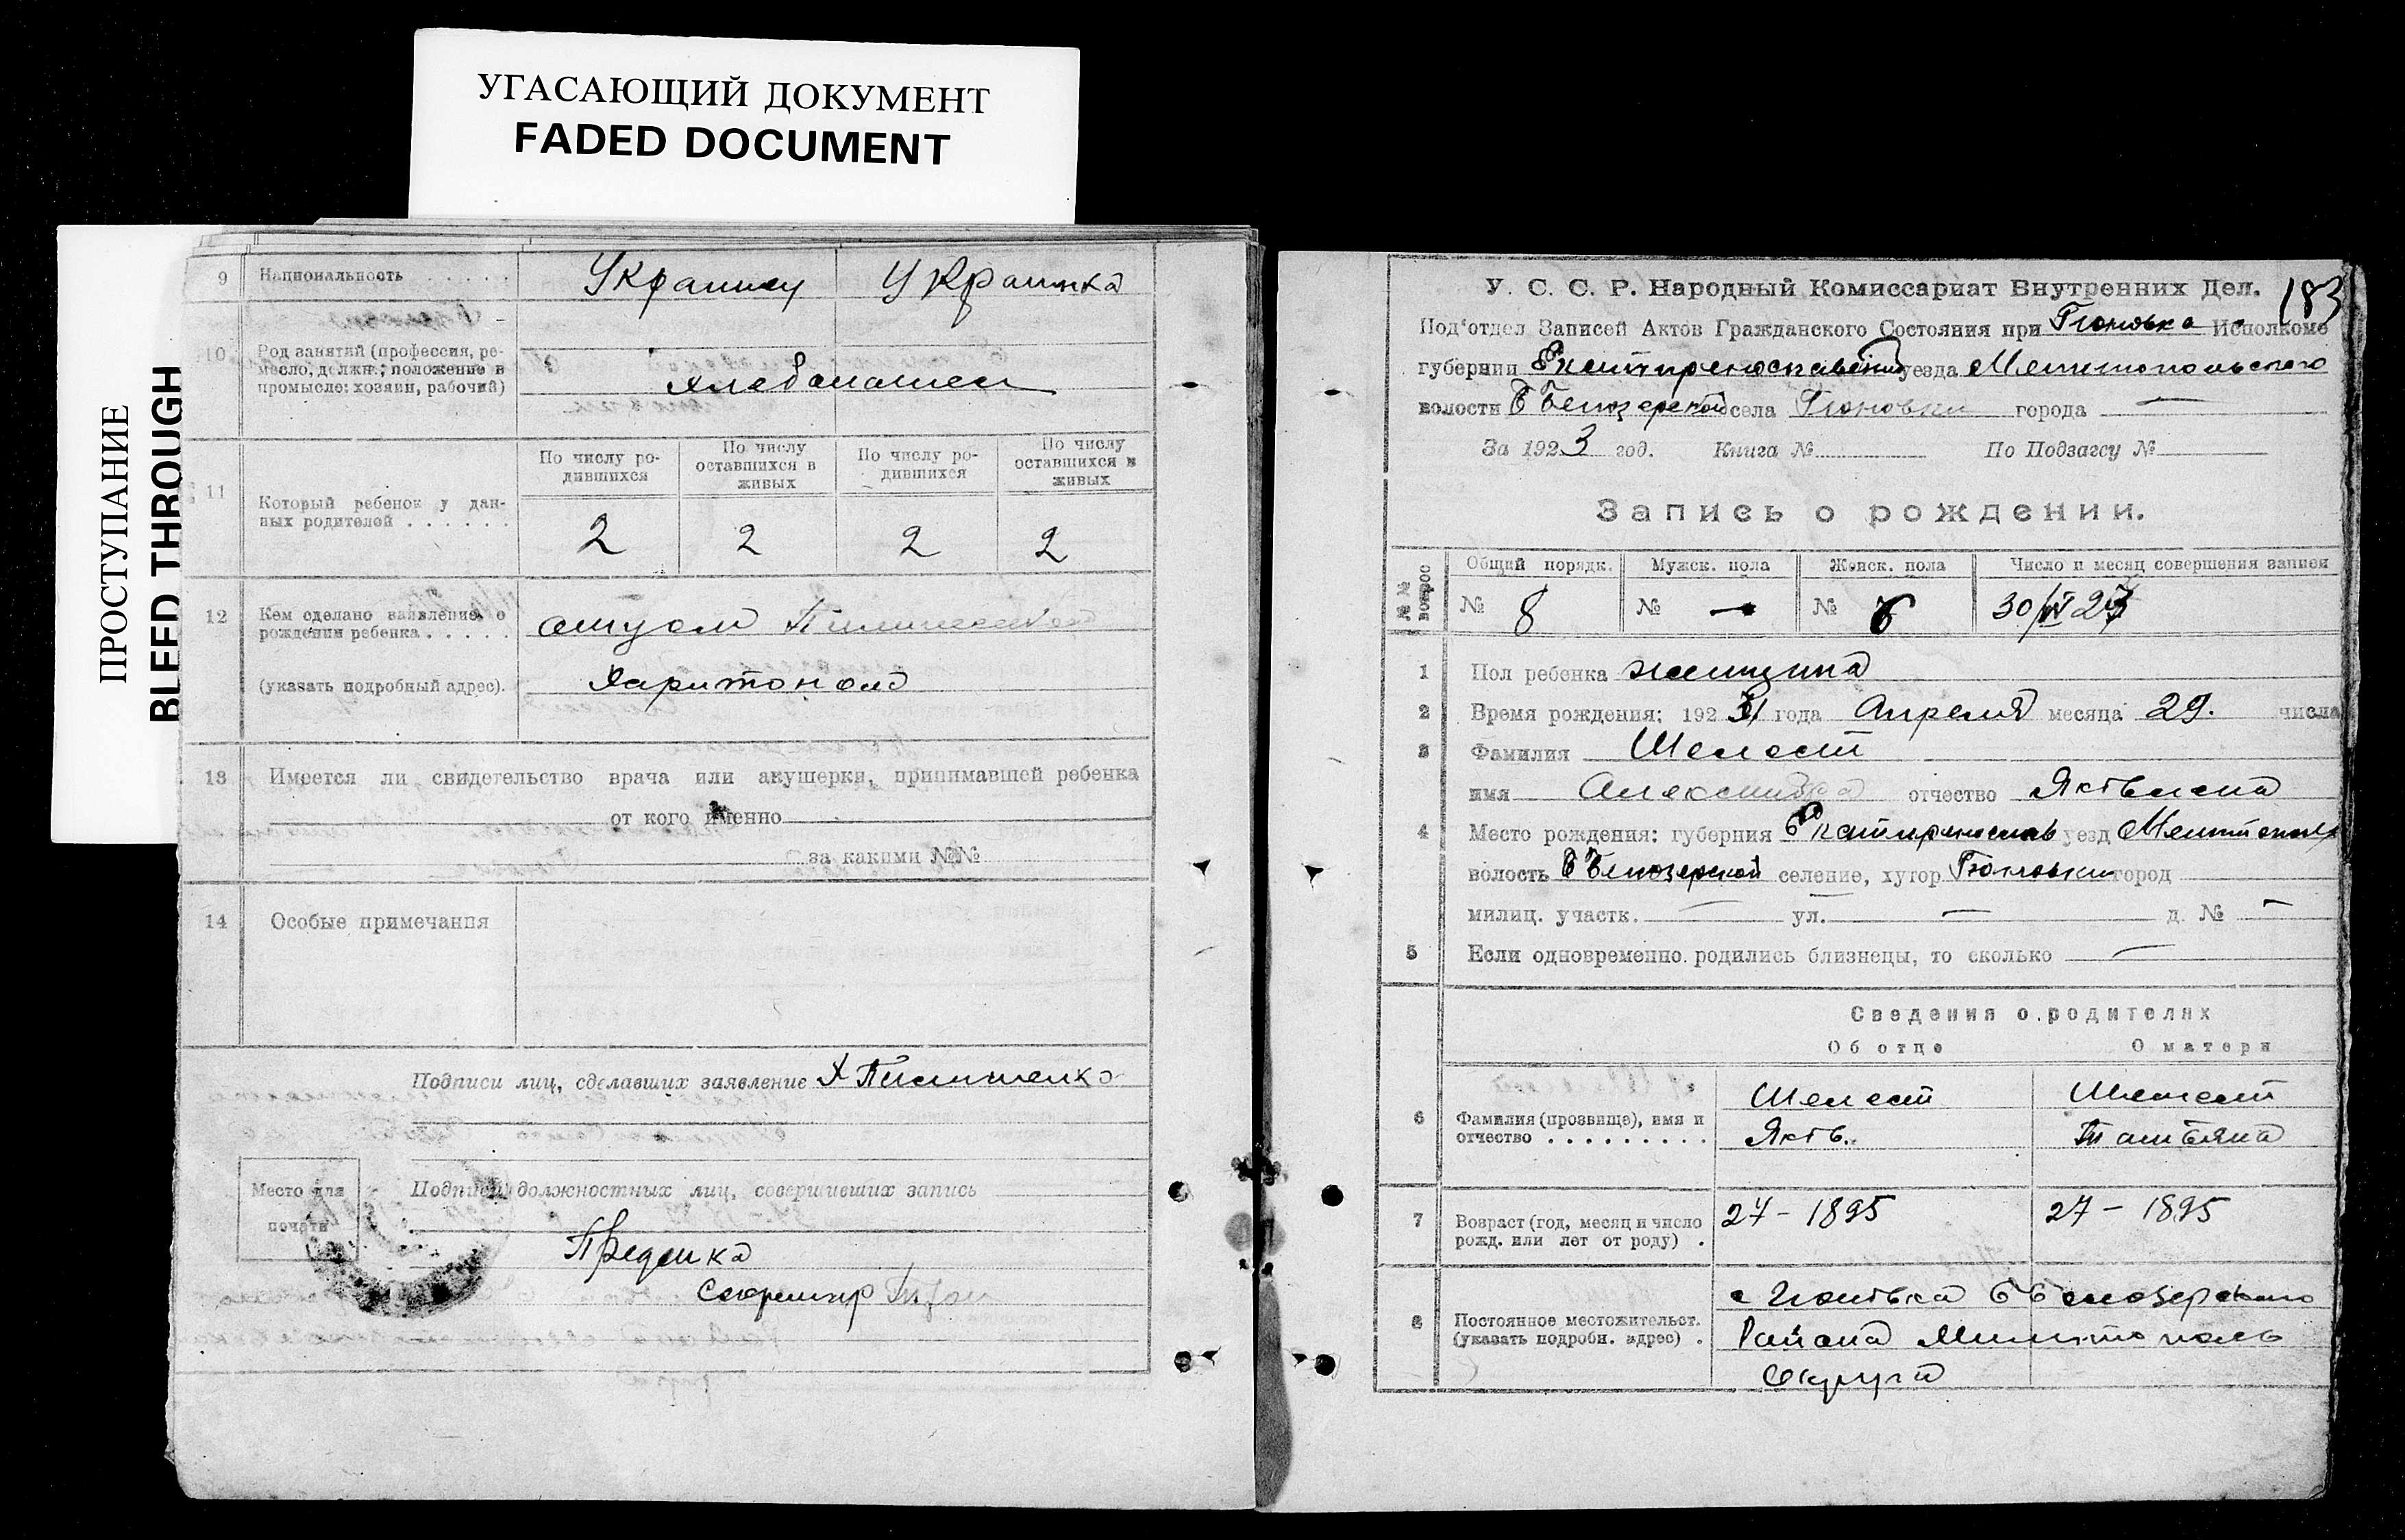 УГАСАЮЩИЙ ДОКУМЕНТ
FADED DOCUMENT
ПРОСТУПАНИЕ
BLEED THROUGH
9 Национальность . . . . . Украинец Украинка
10 Род занятий (профессия, ре-
месло, должн.; положение в
промысле: хозяин, рабочий)
хлебопашец
11 Который ребенок у дан-
ных родителей . . . . . .
По числу ро-
дившихся
По числу
оставшихся в
живых
По числу ро-
дившихся
По числу
оставшихся в
живых
2 2 2 2
12 Кем сделано заявление о
рождении ребенка . . . . .
отцом
(указать подробный адрес).
Харитоном
13 Имеется ли свидетельство врача или акушерки, принимавшей ребенка
от кого именно
за какими №№
14 Особые примечания
Подписи лиц, сделавших заявление Х Пилипенко
Место для
печати
Подписи должностных лиц, совершивших запись
183
У. С. С. Р. Народный Комиссариат Внутренних Дел.
Под'отдел Записей Актов Гражданского Состояния при Исполкоме
губернии уезда Мелитопольского
волости Б Белозерской села города —
За 1923 год. Книга № По Подзагсу №
Запись о рождении.
№№ вопрос
Общий порядк. Мужск. пола Женск. пола Число и месяц совершения записи
№ 8 № — № 30/IV 23
1 Пол ребенка
2 Время рождения: 1923 года Апреля месяца 29. числа
3 Фамилия Шелест
имя отчество Яковлена
4 Место рождения: губерния уезд
волость Б Белозерской селение, хутор город
милиц. участк. — ул. — д. № —
5 Если одновременно родились близнецы, то сколько —
Сведения о родителях
Об отце О матери
6 Фамилия (прозвище), имя и
отчество . . . . . . . . .
Шелест Шелест
Яков. Татьяна
7 Возраст (год, месяц и число
рожд. или лет от роду) .
27 – 1895 27 – 1895
8 Постоянное местожительст.
(указать подробн. адрес) .
Района Мелитополь
Округа